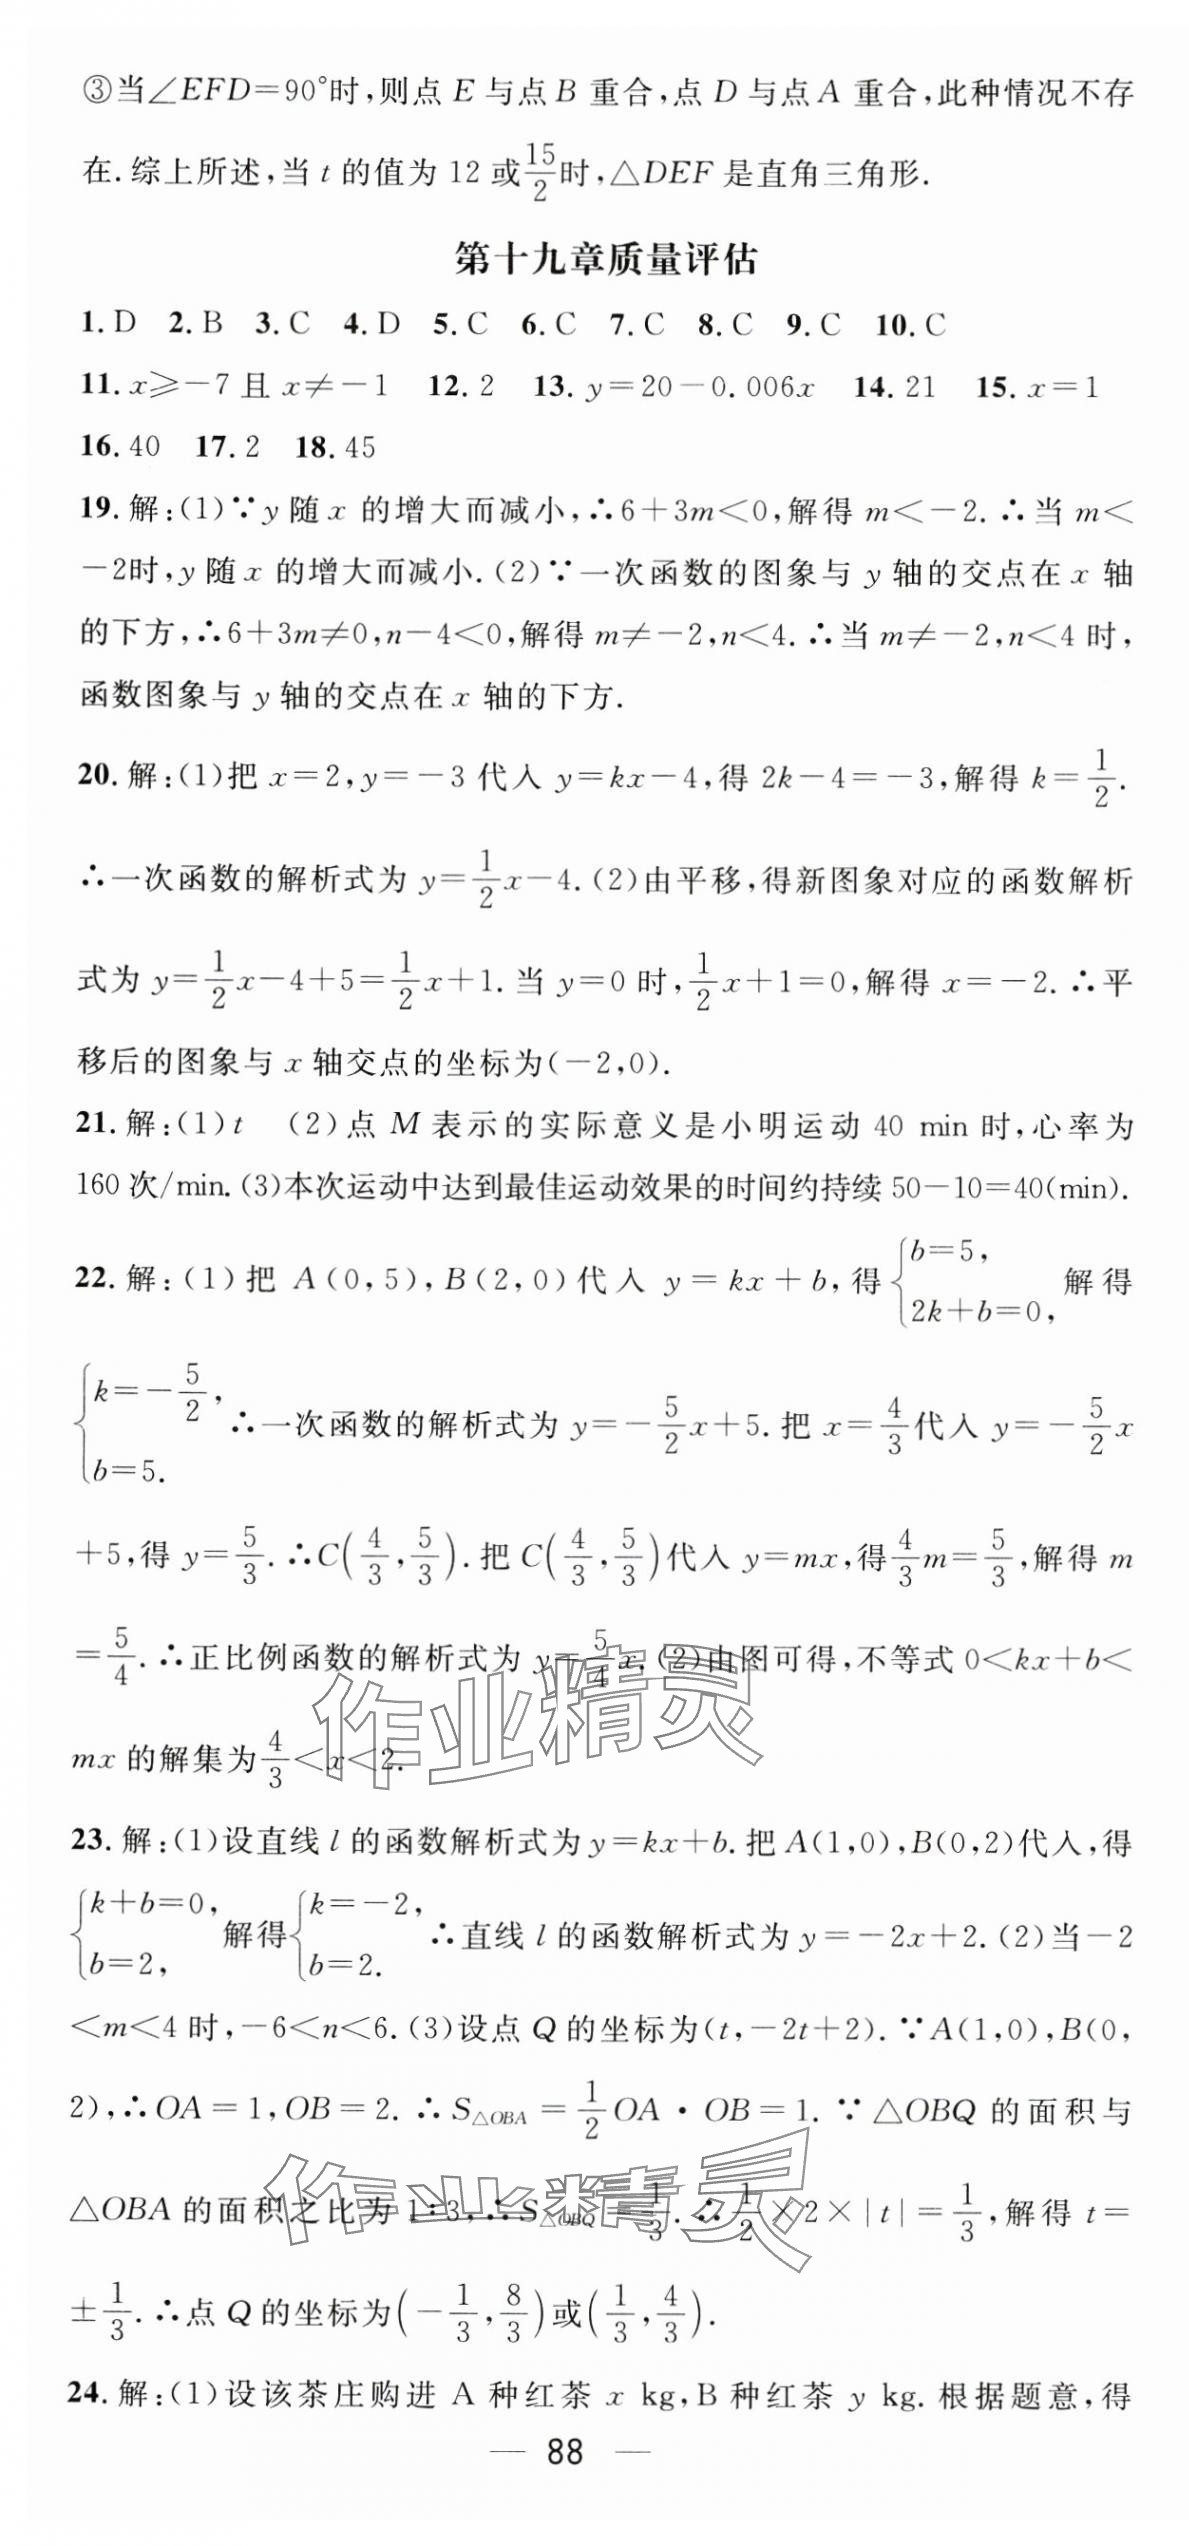 ③当∠EFD=90°时,则点 E 与点 B 重合,点 D 与点 A 重合,此种情况不存
在.综上所述,当 t 的值为 12 或15/2时,△DEF 是直角三角形.
第十九章质量评估
1.D 2.B 3.C 4.D 5.C 6.C 7.C 8.C 9.C 10.C
11.x≥-7 且 x≠-1 12.2 13.y=20-0.006x 14.21 15.x=1
16.40 17.2 18.45
19.解:(1)∵y 随 x 的增大而减小,∴6+3m<0,解得 m<-2.∴当 m<
-2时,y 随 x 的增大而减小.(2)∵一次函数的图象与 y 轴的交点在 x 轴
的下方,∴6+3m≠0,n-4<0,解得 m≠-2,n<4.∴当 m≠-2,n<4 时,
函数图象与 y 轴的交点在 x 轴的下方.
20.解:(1)把 x=2,y=-3 代入 y=kx-4,得 2k-4=-3,解得 k=1/2.
∴一次函数的解析式为 y=1/2x-4.(2)由平移,得新图象对应的函数解析
式为 y=1/2x-4+5=1/2x+1.当 y=0 时,1/2x+1=0,解得 x=-2.∴平
移后的图象与 x 轴交点的坐标为(-2,0).
21.解:(1)t (2)点 M 表示的实际意义是小明运动 40 min 时,心率为
160 次/min.(3)本次运动中达到最佳运动效果的时间约持续 50-10=40(min).
22.解:(1)把 A(0,5),B(2,0)代入 y=kx+b,得{b=5, 2k+b=0, 解得
{k=-5/2, b=5. ∴一次函数的解析式为 y=-5/2x+5.把 x=4/3代入 y=-5/2x
+5,得 y=5/3.∴C(4/3,5/3).把 C(4/3,5/3)代入 y=mx,得4/3m=5/3,解得 m
=5/4.∴正比例函数的解析式为 y=5/4x.(2)由图可得,不等式 0<kx+b<
mx 的解集为4/3<x<2.
23.解:(1)设直线 l 的函数解析式为 y=kx+b.把 A(1,0),B(0,2)代入,得
{k+b=0, b=2, 解得{k=-2, b=2. ∴直线 l 的函数解析式为 y=-2x+2.(2)当-2
<m<4 时,-6<n<6.(3)设点 Q 的坐标为(t,-2t+2).∵A(1,0),B(0,
2),∴OA=1,OB=2.∴S△OBA=1/2OA·OB=1.∵△OBQ 的面积与
△OBA 的面积之比为 1∶3,∴S△OBQ=1/3.∴1/2×2×|t|=1/3,解得 t=
±1/3.∴点 Q 的坐标为(-1/3,8/3)或(1/3,4/3).
24.解:(1)设该茶庄购进 A 种红茶 x kg,B 种红茶 y kg.根据题意,得
88
作业精灵
作业精灵